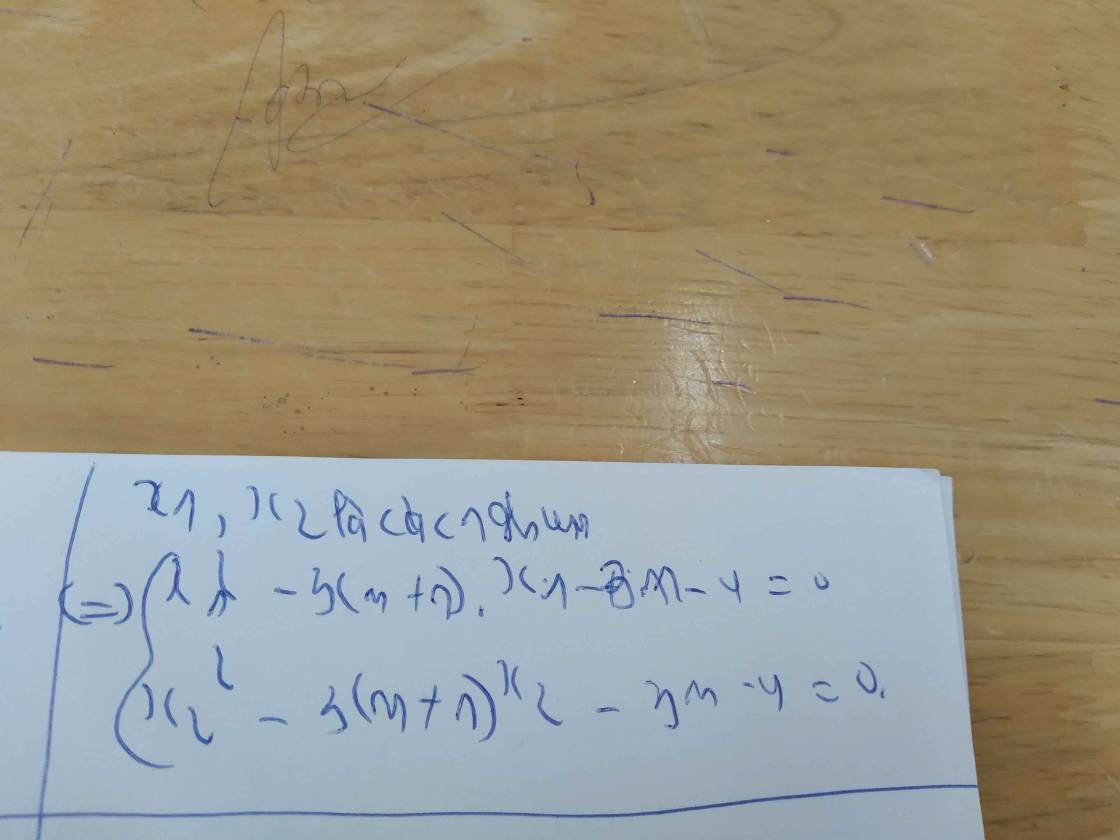 x1, x2 là các nghiệm
(=) { x1² - 3(m+1).x1 - 3m - 4 = 0
x2² - 3(m+1)x2 - 3m - 4 = 0.